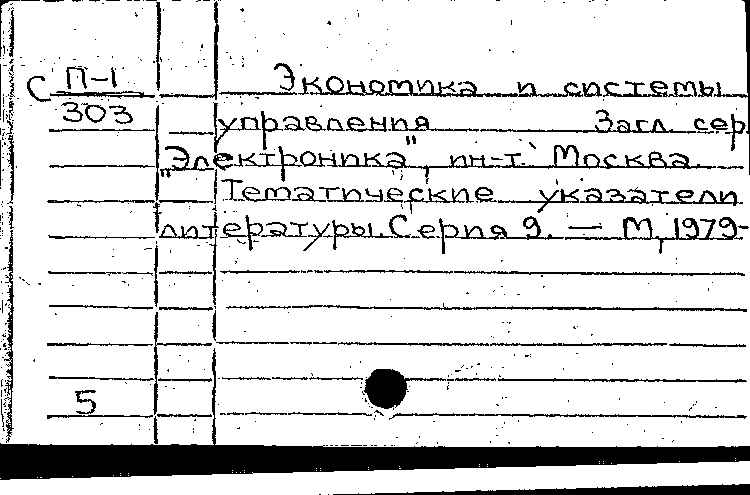 С П-1 Экономика и системы
303 управления Загл. сер.
"Электроника", ин-т. Москва.
Тематические указатели
литературы. Серия 9. — М, 1979-
5